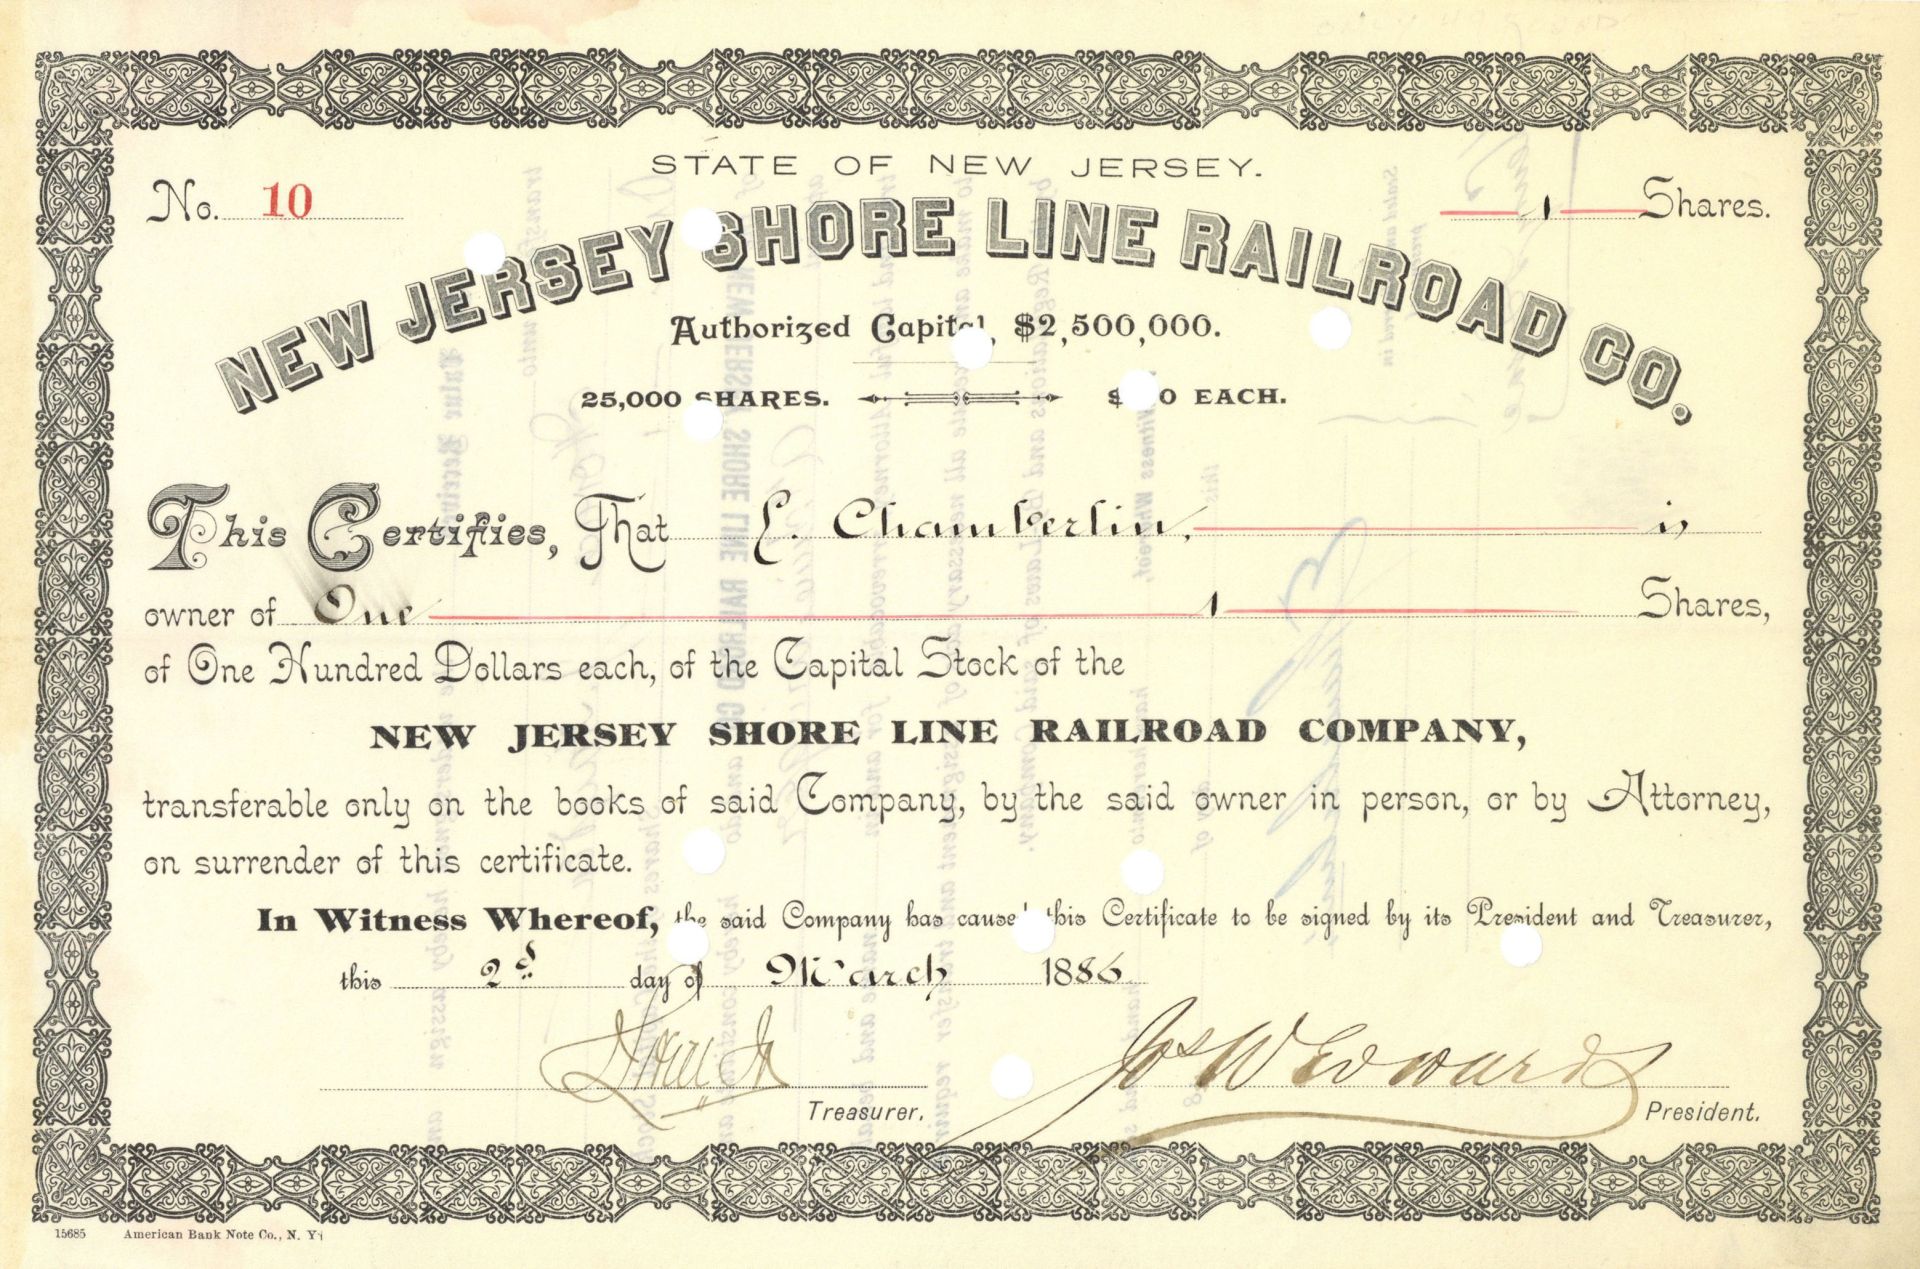 STATE OF NEW JERSEY.
No. 10
1 Shares.
NEW JERSEY SHORE LINE RAILROAD CO.
Authorized Capital, $2,500,000.
25,000 SHARES. $100 EACH.
This Certifies, That L. Chamberlin, is
owner of One 1 Shares,
of One Hundred Dollars each, of the Capital Stock of the
NEW JERSEY SHORE LINE RAILROAD COMPANY,
transferable only on the books of said Company, by the said owner in person, or by Attorney,
on surrender of this certificate.
In Witness Whereof, the said Company has caused this Certificate to be signed by its President and Treasurer,
this 2d day of March 1886
Jos W Edwards
Treasurer.
President.
15685 American Bank Note Co., N. Y.